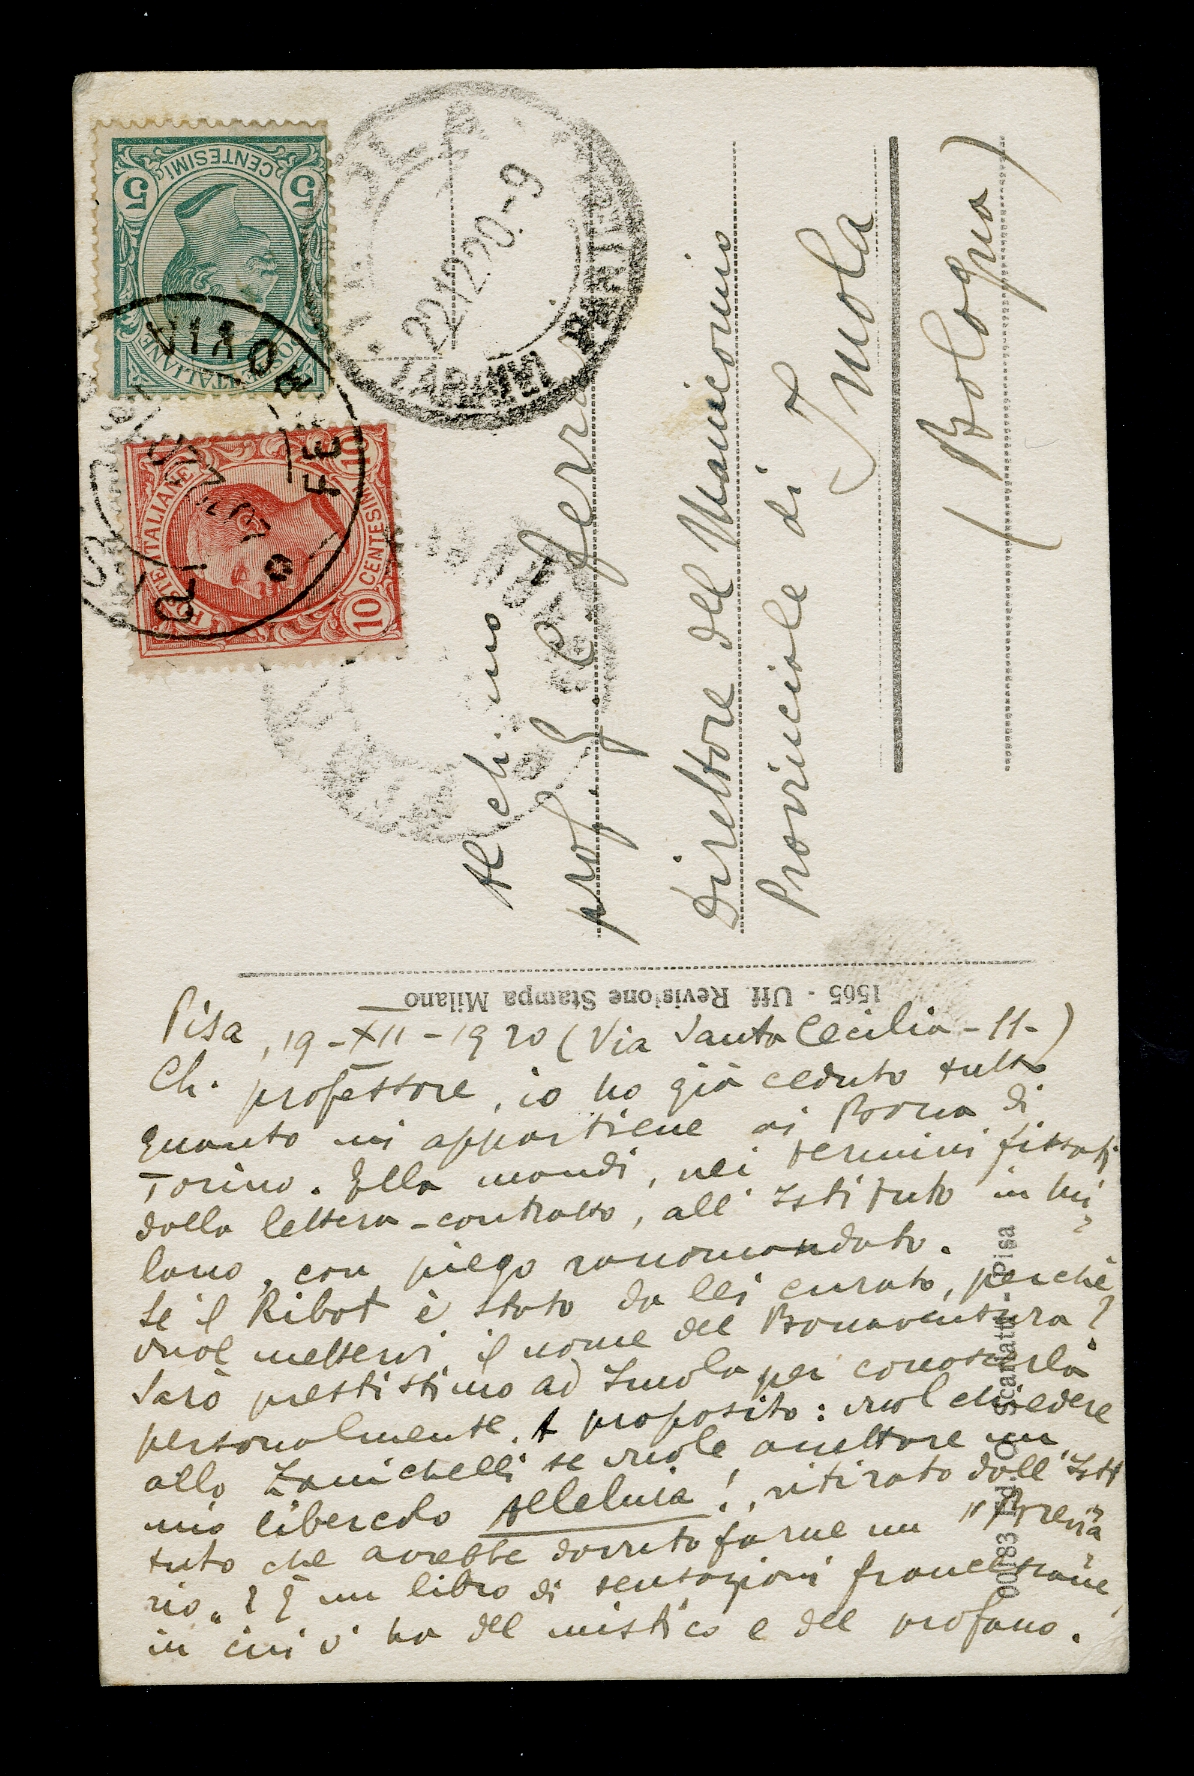 Pisa, 19-XII-1920 (Via Santa Cecilia-11-)
Ch. professore, io ho già ceduto tutto
quanto mi appartiene ai Bocca di
Torino. Ella mandi, nei termini fissati
dalla lettera-contratto, all'Istituto in Mi=
lano, con piego raccomandato.
Se il Ribot è stato da lei curato, perchè
vuol mettervi il nome del Bonaventura?
Sarò prestissimo ad Imola per conoscerla
personalmente. A proposito: vuol chiedere
allo Zanichelli se vuole accettare un
mio libercolo Alleluia!, ritirato dall'Isti
tuto che avrebbe dovuto farne un "Brevia=
rio"? È un libro di sensazioni francescane,
in cui v'ha del mistico e del profano.
1565 - Uff. Revisione Stampa Milano
00183 Ed. O. Scarlatti - Pisa
Al ch.mo
prof. G. C. Ferrari
Direttore del Manicomio
Provinciale di Imola
(Bologna)
POSTE ITALIANE
CENTESIMI
5 5
POSTE ITALIANE
10 CENTESIMI 10
IMOLA
22.12.20.-9